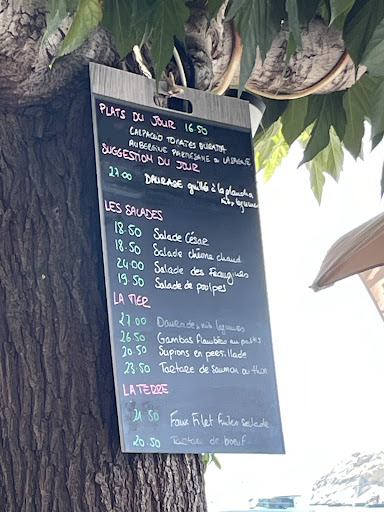 PLATS DU JOUR 16.50
CARPACCIO TOMATES BURATTA
AUBERGINE PARMESANE OU LASAGNE
SUGGESTION DU JOUR
27.00 DAURADE grillé à la plancha
riz, legumes
LES SALADES
18.50 Salade César
18.50 Salade chèvre chaud
24.00 Salade des Frangines
19.50 Salade de poulpes
LA MER
27.00 Daurade, riz legumes
26.50 Gambas flambées au pastis
20.50 Supions en persillade
23.50 Tartare de Saumon ou thon
LA TERRE
21.50 Faux Filet frites salade
20.50 Tartare de boeuf